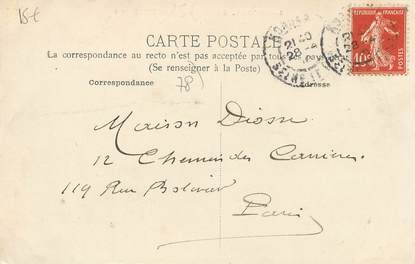 15€
CARTE POSTALE
La correspondance au recto n'est pas acceptée par tous les pays
(Se renseigner à la Poste)
Correspondance
Adresse
78
REPUBLIQUE FRANÇAISE
10
21 40
28
Maison Diosse
12 Chemin des Carrières
119 Rue Bolivar
Paris